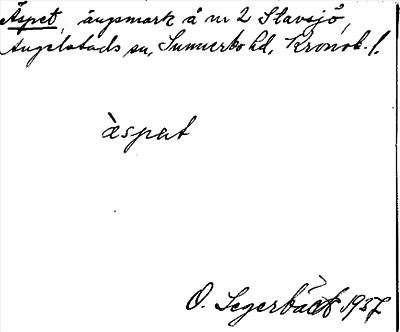 Äspet, ängsmark å nr 2 Stavsjö,
Angelstads sn, Sunnerbo hd, Kronob. l.
àspɑt
O. Segerbäck 1937